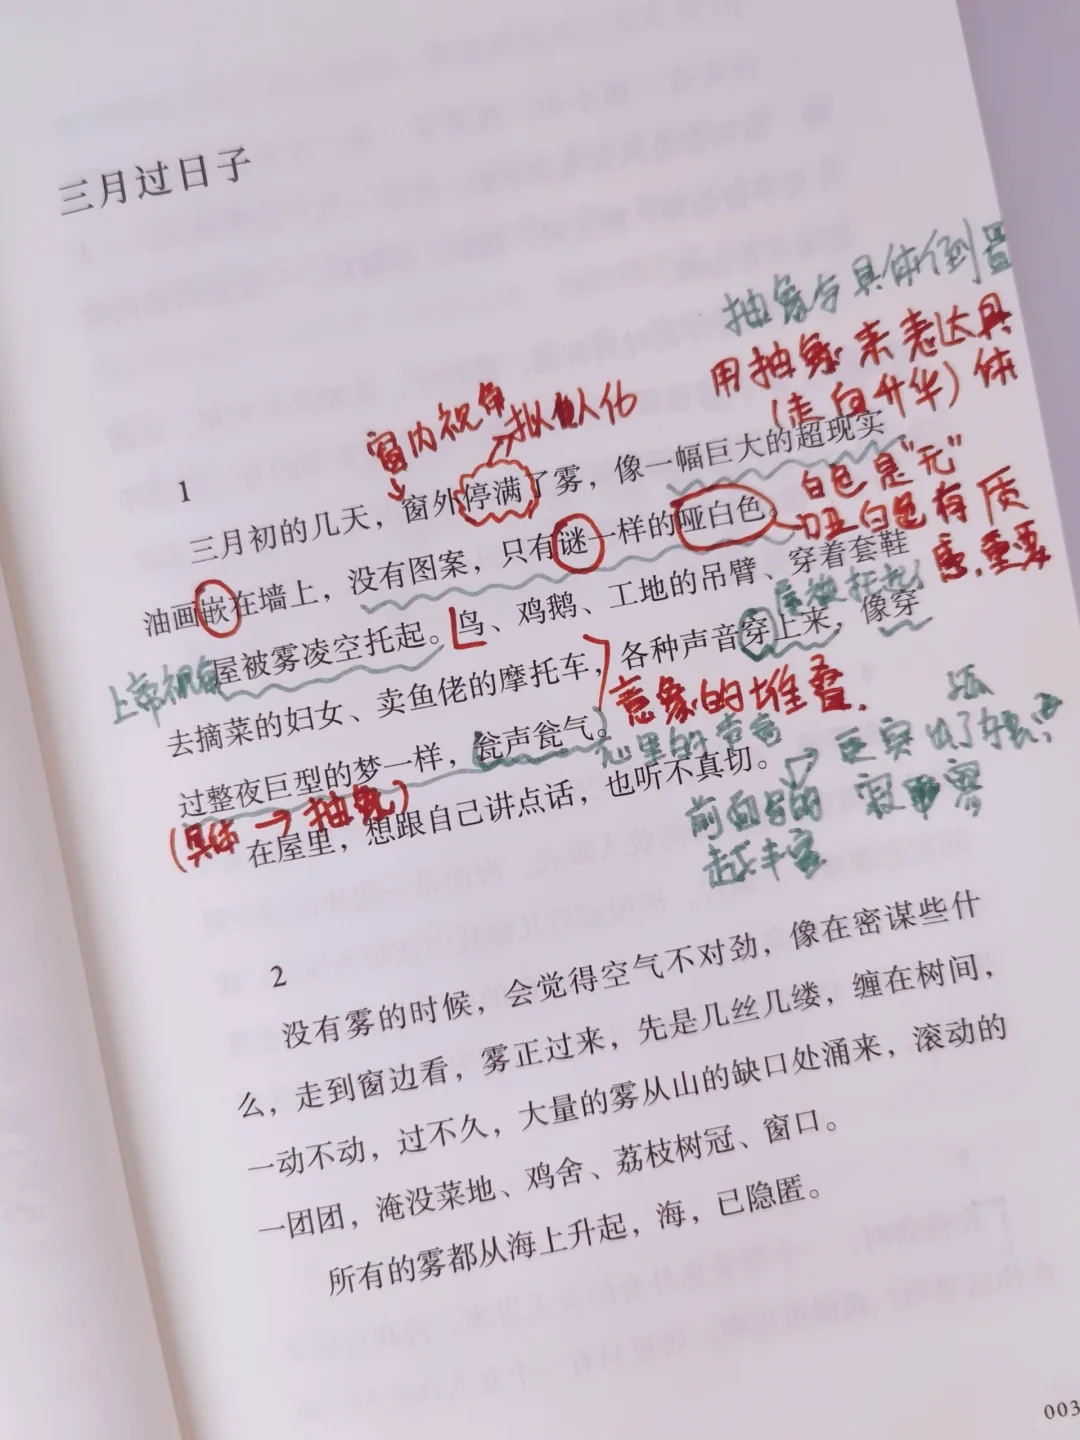 三月过日子
抽象与具体倒置
用抽象来表达具体
(走向升华)
窗内视角
拟人化
1
三月初的几天，窗外停满了雾，像一幅巨大的超现实
白色是“无”
油画嵌在墙上，没有图案，只有谜一样的哑白色。
哑白色有质感，重要
屋被雾凌空托起。鸟、鸡鹅、工地的吊臂、穿着套鞋
屋被托起
上帝视角
去摘菜的妇女、卖鱼佬的摩托车，各种声音穿上来，像穿
意象的堆叠.
过整夜巨型的梦一样，瓮声瓮气。
心里的声音
(具体→抽象)
在屋里，想跟自己讲点话，也听不真切。
前面写的越丰富
2
没有雾的时候，会觉得空气不对劲，像在密谋些什
么，走到窗边看，雾正过来，先是几丝几缕，缠在树间，
一动不动，过不久，大量的雾从山的缺口处涌来，滚动的
一团团，淹没菜地、鸡舍、荔枝树冠、窗口。
所有的雾都从海上升起，海，已隐匿。
003